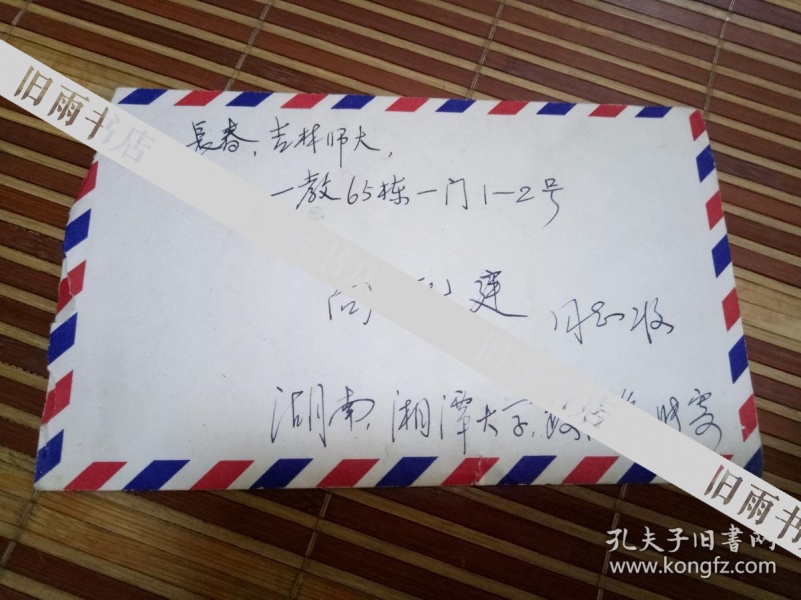 長春、吉林师大,
一教65栋一门1-2号
建 同志收
湖南、湘潭大学,
旧雨书店
旧雨书店
旧雨书店
孔夫子旧書网
www.kongfz.com